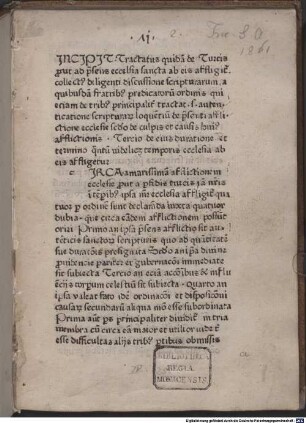 ·VI·
INCIPIT Tractatus quidā de Turcis
put ad p̄sens ecclesia sancta ab eis affligit̄
collect' diligenti discussione scripturarum a
quibusdā fratrib' predicatorū ordinis qui
etiam de trib' principalit̄ tractat s. autē-
ticatione scripturar loquētiū de p̄senti affli-
ctione ecclesie scd'o de culpis et causis
afflictionis Tercio de eius duratione et
termino quātū videlicz temporis ecclesia ab
eis affligetur
CIRCA amarissimā afflictionem
ecclesie put a p̄fidis turcis iā n̄ris
tp̄ib' ipsa m̄r ecclesia affligit̄ qua
tuor p ordinē sunt declarāda iuxta quatuor
dubia que circa eādem afflictionem possūt
oriri Primo an ipsa p̄sens afflictio sit au-
tēticis sanctoꝝ scripturis quo ad quātitatē
sue durationis presignata Secdo an ipsa diuina
prouidencie pariter et gubernationi immediate
sit subiecta Tercio an eciā actōib' et influ
ētijs corpum celestiū sit subiecta Quarto an
ipsa valeat sacro idē ordinacōi et disposicōni
causaꝝ secundaꝝ absqua mō esse subordinata
Prima aūt ps principaliter diuidit̄ in tria
membra cū circa eā maior et vtilior videt̄
esse difficultas alijs trib' ptibus obmissis
BIBLIOTHECA
REGIA
MONACENSIS